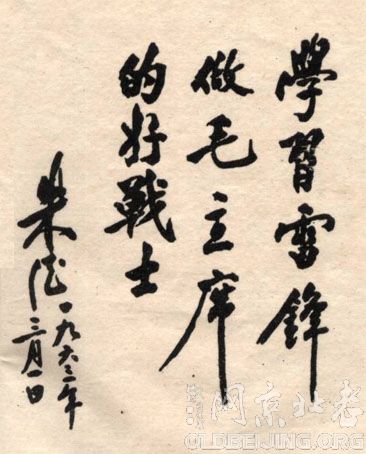 學習雷鋒
做毛主席
的好戰士
朱德
一九六三年
三月一日
老北京网
OLDBEIJING.ORG